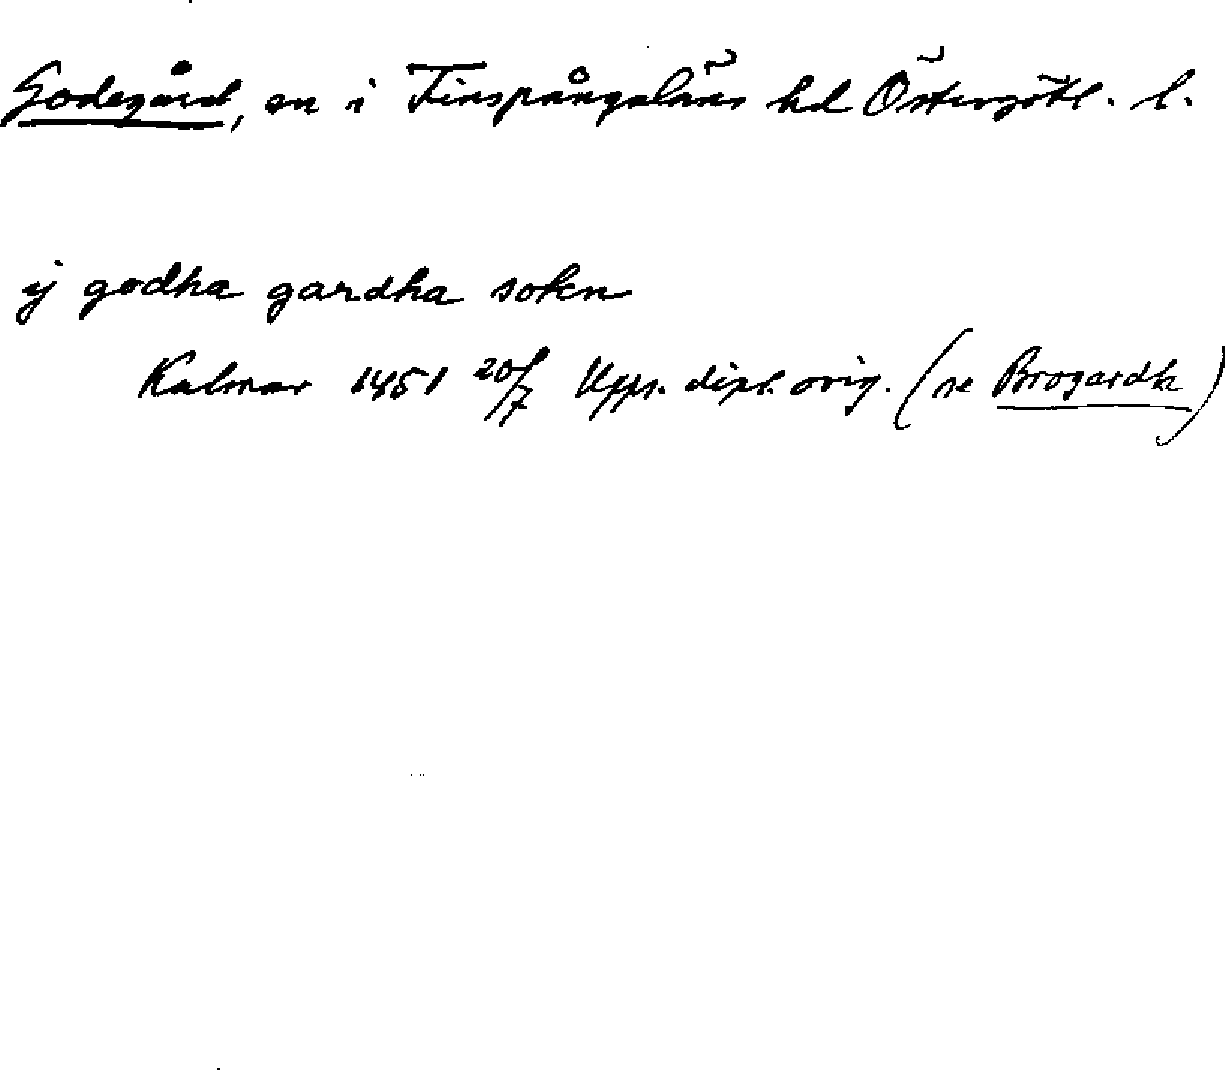 Godegård, sn i Finspångaläns hd Östergötl. l.
ij godha gardha sokn
Kalmar 1451 20/7 Upps. dipl. orig. (se Brogardh)